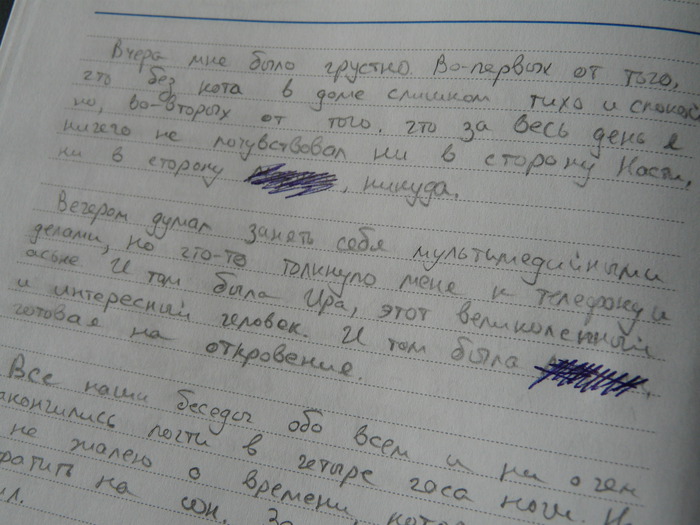 Вчера мне было грустно. Во-первых от того,
что без кота в доме слишком тихо и спокой
но, во-вторых от того, что за весь день я
ничего не почувствовал ни в сторону Насти,
ни в сторону , никуда.
Вечером думал занять себя мультимедийными
делами, но что-то толкнуло меня к телефону и
аське И там была Ира, этот великолепный
и интересный человек. И там была .
готовая на откровения.
Все наши беседы обо всем и ни о чем
акончились почти в четыре часа ночи. И
не жалею о времени, кото
ратить на сон. За
л.